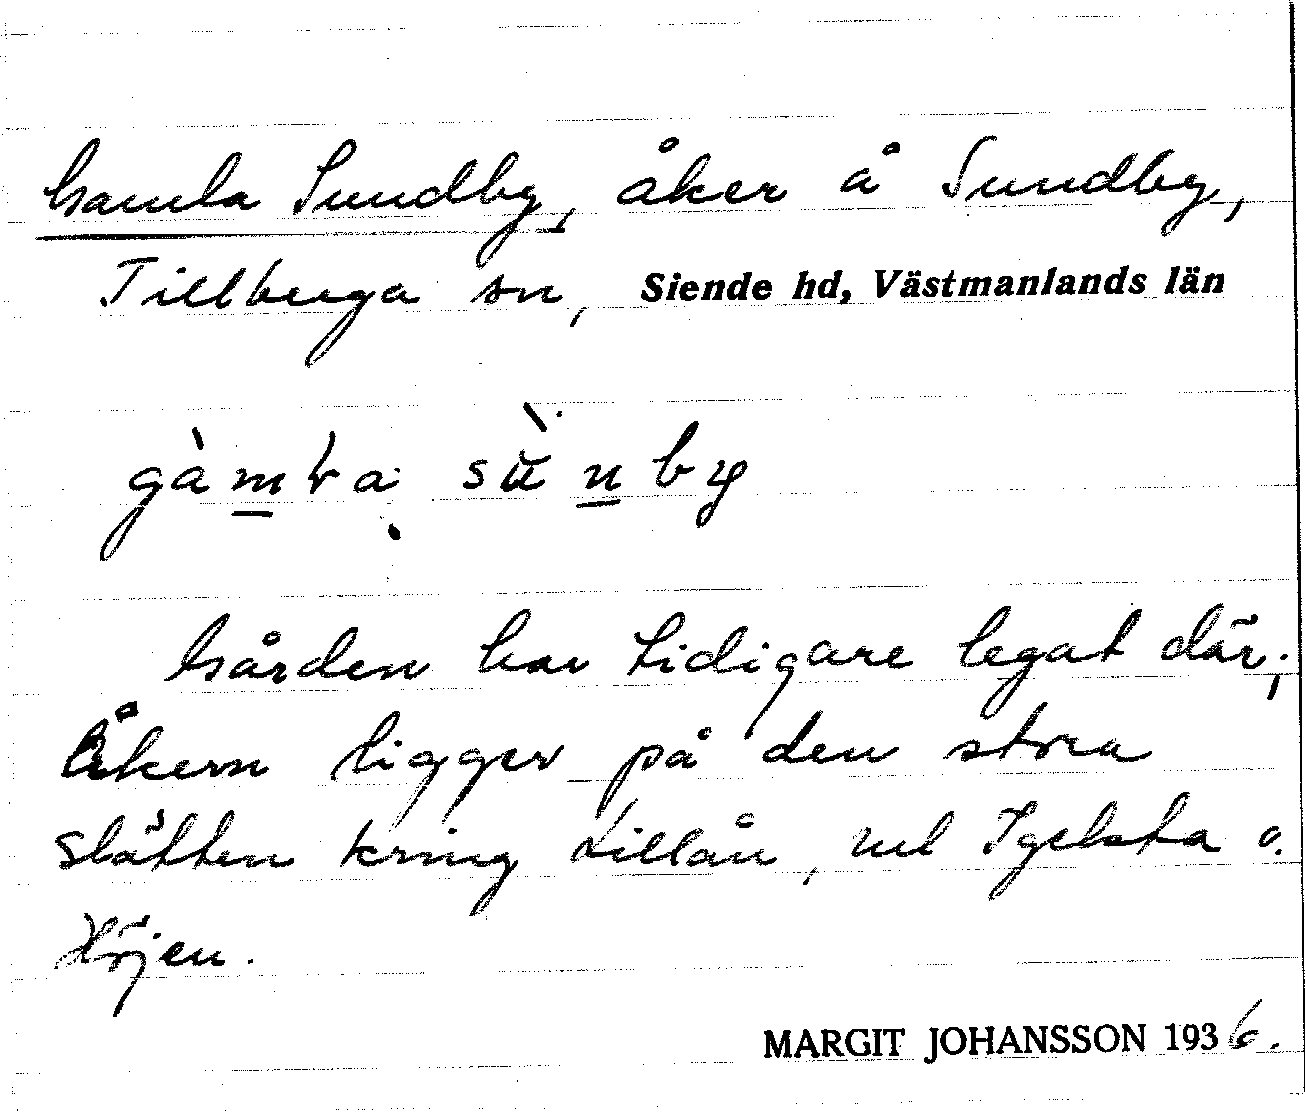 Gamla Sundby, åker å Sundby,
Tillberga sn, Siende hd, Västmanlands län
gàmɽa sùnby
Gården har tidigare legat där;
Åkern ligger på den stora
slätten kring Lillån, mel Igelsta o.
Höjen.
MARGIT JOHANSSON 1936.